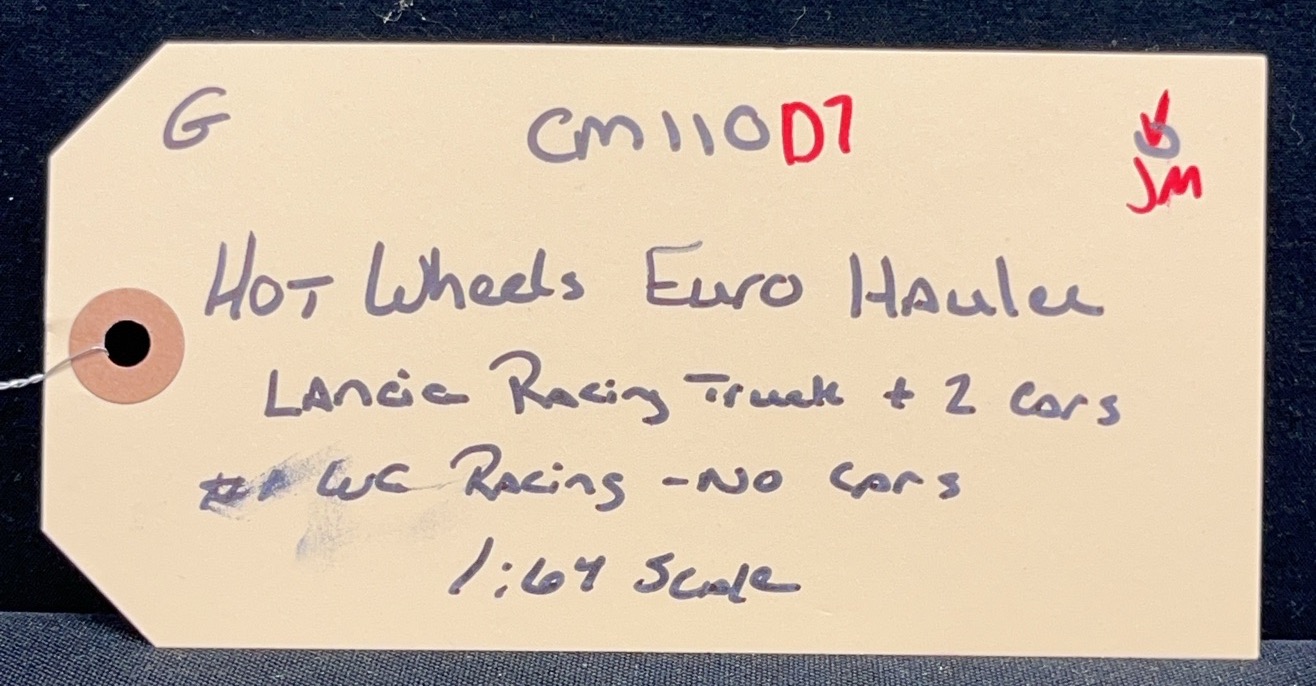 G CM110D7
JM
Hot Wheels Euro Hauler
Lancia Racing Truck + 2 Cars
Racing - No Cars
1:64 Scale